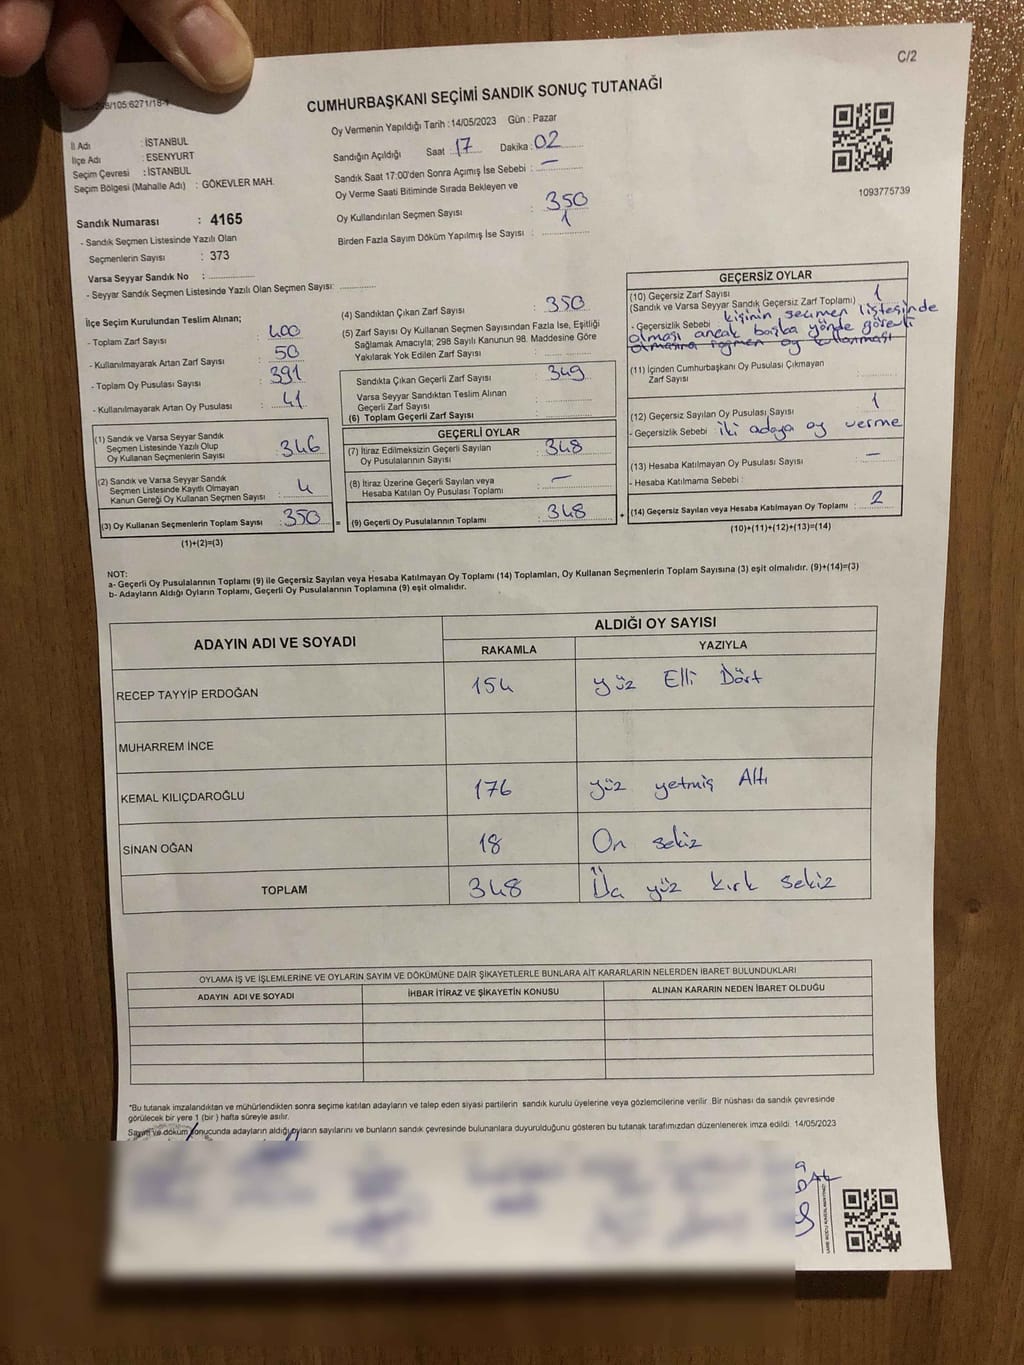 C/2
CUMHURBAŞKANI SEÇİMİ SANDIK SONUÇ TUTANAĞI
İl Adı : İSTANBUL
İlçe Adı : ESENYURT
Seçim Çevresi : İSTANBUL
Seçim Bölgesi (Mahalle Adı) : GÖKEVLER MAH.
Sandık Numarası : 4165
- Sandık Seçmen Listesinde Yazılı Olan
Seçmenlerin Sayısı : 373
Varsa Seyyar Sandık No :
- Seyyar Sandık Seçmen Listesinde Yazılı Olan Seçmen Sayısı:
Oy Vermenin Yapıldığı Tarih :14/05/2023 Gün : Pazar
Sandığın Açıldığı Saat 17 Dakika : 02
Sandık Saat 17:00'den Sonra Açımış İse Sebebi : —
Oy Verme Saati Bitiminde Sırada Bekleyen ve
Oy Kullandırılan Seçmen Sayısı : 350
Birden Fazla Sayım Döküm Yapılmış İse Sayısı : 1
1093775739
İlçe Seçim Kurulundan Teslim Alınan;
- Toplam Zarf Sayısı : 400
- Kullanılmayarak Artan Zarf Sayısı : 50
- Toplam Oy Pusulası Sayısı : 391
- Kullanılmayarak Artan Oy Pusulası : 41
(1) Sandık ve Varsa Seyyar Sandık
Seçmen Listesinde Yazılı Olup
Oy Kullanan Seçmenlerin Sayısı : 346
(2) Sandık ve Varsa Seyyar Sandık
Seçmen Listesinde Kayıtlı Olmayan
Kanun Gereği Oy Kullanan Seçmen Sayısı : 4
(3) Oy Kullanan Seçmenlerin Toplam Sayısı : 350
(1)+(2)=(3)
(4) Sandıktan Çıkan Zarf Sayısı : 350
(5) Zarf Sayısı Oy Kullanan Seçmen Sayısından Fazla İse, Eşitliği
Sağlamak Amacıyla; 298 Sayılı Kanunun 98. Maddesine Göre
Yakılarak Yok Edilen Zarf Sayısı :
Sandıkta Çıkan Geçerli Zarf Sayısı : 349
Varsa Seyyar Sandıktan Teslim Alınan
Geçerli Zarf Sayısı :
(6) Toplam Geçerli Zarf Sayısı :
GEÇERLİ OYLAR
(7) İtiraz Edilmeksizin Geçerli Sayılan
Oy Pusulalarının Sayısı : 348
(8) İtiraz Üzerine Geçerli Sayılan veya
Hesaba Katılan Oy Pusulası Toplamı : —
=
(9) Geçerli Oy Pusulalarının Toplamı : 348
+
GEÇERSİZ OYLAR
(10) Geçersiz Zarf Sayısı
(Sandık ve Varsa Seyyar Sandık Geçersiz Zarf Toplamı) : 1
- Geçersizlik Sebebi : kişinin seçmen listesinde
olması ancak başka yönde görevli
olmasına rağmen oy kullanması
(11) İçinden Cumhurbaşkanı Oy Pusulası Çıkmayan
Zarf Sayısı :
(12) Geçersiz Sayılan Oy Pusulası Sayısı : 1
- Geçersizlik Sebebi : iki adaya oy verme
(13) Hesaba Katılmayan Oy Pusulası Sayısı : —
- Hesaba Katılmama Sebebi :
(14) Geçersiz Sayılan veya Hesaba Katılmayan Oy Toplamı : 2
(10)+(11)+(12)+(13)=(14)
NOT:
a- Geçerli Oy Pusulalarının Toplamı (9) ile Geçersiz Sayılan veya Hesaba Katılmayan Oy Toplamı (14) Toplamları, Oy Kullanan Seçmenlerin Toplam Sayısına (3) eşit olmalıdır. (9)+(14)=(3)
b- Adayların Aldığı Oyların Toplamı, Geçerli Oy Pusulalarının Toplamına (9) eşit olmalıdır.
ADAYIN ADI VE SOYADI
ALDIĞI OY SAYISI
RAKAMLA YAZIYLA
RECEP TAYYİP ERDOĞAN 154 yüz Elli Dört
MUHARREM İNCE
KEMAL KILIÇDAROĞLU 176 yüz yetmiş Altı
SİNAN OĞAN 18 On sekiz
TOPLAM 348 yüz kırk sekiz
OYLAMA İŞ VE İŞLEMLERİNE VE OYLARIN SAYIM VE DÖKÜMÜNE DAİR ŞİKAYETLERLE BUNLARA AİT KARARLARIN NELERDEN İBARET BULUNDUKLARI
ADAYIN ADI VE SOYADI İHBAR İTİRAZ VE ŞİKAYETİN KONUSU ALINAN KARARIN NEDEN İBARET OLDUĞU
*Bu tutanak imzalandıktan ve mühürlendikten sonra seçime katılan adayların ve talep eden siyasi partilerin sandık kurulu üyelerine veya gözlemcilerine verilir. Bir nüshası da sandık çevresinde
görülecek bir yere 1 (bir) hafta süreyle asılır.
Sayım ve döküm sonucunda adayların aldığı oyların sayılarını ve bunların sandık çevresinde bulunanlara duyurulduğunu gösteren bu tutanak tarafımızdan düzenlenerek imza edildi. 14/05/2023